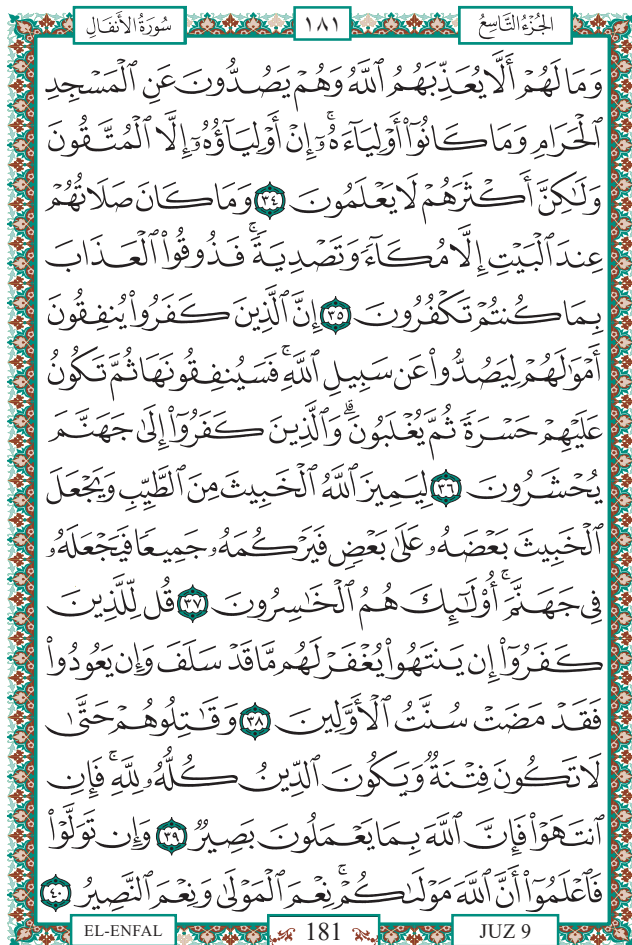 الجُزْءُ التَّاسِعُ ١٨١ سُورَةُ الأَنفَالِ
وَمَا لَهُمْ أَلَّا يُعَذِّبَهُمُ ٱللَّهُ وَهُمْ يَصُدُّونَ عَنِ ٱلْمَسْجِدِ
ٱلْحَرَامِ وَمَا كَانُوٓا۟ أَوْلِيَآءَهُۥٓ ۚ إِنْ أَوْلِيَآؤُهُۥٓ إِلَّا ٱلْمُتَّقُونَ
وَلَٰكِنَّ أَكْثَرَهُمْ لَا يَعْلَمُونَ ٣٤ وَمَا كَانَ صَلَاتُهُمْ
عِندَ ٱلْبَيْتِ إِلَّا مُكَآءً وَتَصْدِيَةً ۚ فَذُوقُوا۟ ٱلْعَذَابَ
بِمَا كُنتُمْ تَكْفُرُونَ ٣٥ إِنَّ ٱلَّذِينَ كَفَرُوا۟ يُنفِقُونَ
أَمْوَٰلَهُمْ لِيَصُدُّوا۟ عَن سَبِيلِ ٱللَّهِ ۚ فَسَيُنفِقُونَهَا ثُمَّ تَكُونُ
عَلَيْهِمْ حَسْرَةً ثُمَّ يُغْلَبُونَ ۗ وَٱلَّذِينَ كَفَرُوٓا۟ إِلَىٰ جَهَنَّمَ
يُحْشَرُونَ ٣٦ لِيَمِيزَ ٱللَّهُ ٱلْخَبِيثَ مِنَ ٱلطَّيِّبِ وَيَجْعَلَ
ٱلْخَبِيثَ بَعْضَهُۥ عَلَىٰ بَعْضٍ فَيَرْكُمَهُۥ جَمِيعًا فَيَجْعَلَهُۥ
فِى جَهَنَّمَ ۚ أُو۟لَٰٓئِكَ هُمُ ٱلْخَٰسِرُونَ ٣٧ قُل لِّلَّذِينَ
كَفَرُوٓا۟ إِن يَنتَهُوا۟ يُغْفَرْ لَهُم مَّا قَدْ سَلَفَ وَإِن يَعُودُوا۟
فَقَدْ مَضَتْ سُنَّتُ ٱلْأَوَّلِينَ ٣٨ وَقَٰتِلُوهُمْ حَتَّىٰ
لَا تَكُونَ فِتْنَةٌ وَيَكُونَ ٱلدِّينُ كُلُّهُۥ لِلَّهِ ۚ فَإِنِ
ٱنتَهَوْا۟ فَإِنَّ ٱللَّهَ بِمَا يَعْمَلُونَ بَصِيرٌ ٣٩ وَإِن تَوَلَّوْا۟
فَٱعْلَمُوٓا۟ أَنَّ ٱللَّهَ مَوْلَىٰكُمْ ۚ نِعْمَ ٱلْمَوْلَىٰ وَنِعْمَ ٱلنَّصِيرُ ٤٠
EL-ENFAL 181 JUZ 9